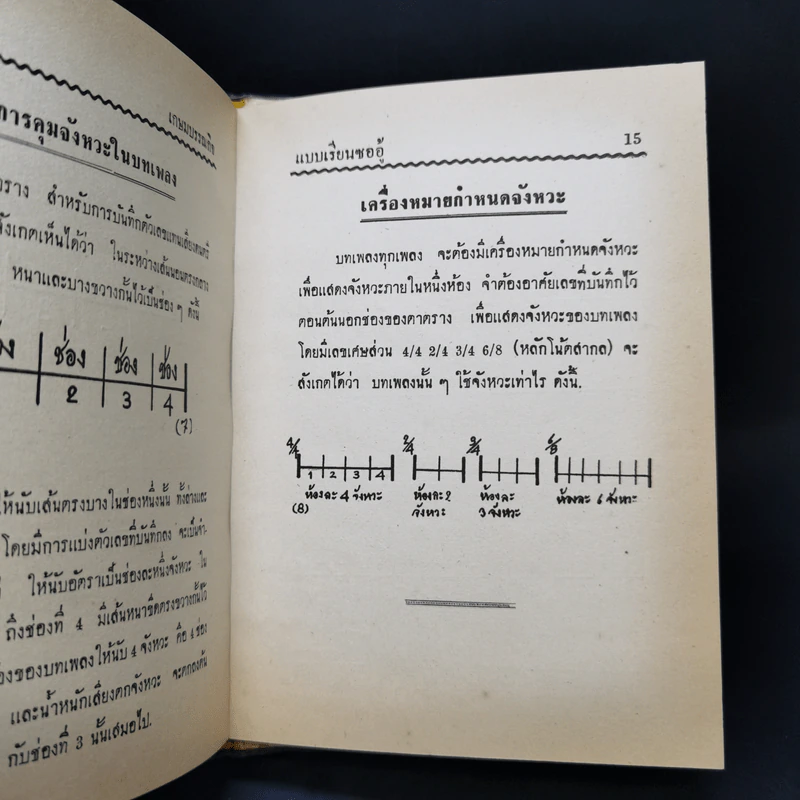 เกษมบรรณกิจ
การคุมจังหวะในบทเพลง
ราง สำหรับการบันทึกตัวเลขแทนเสียงดนตรี
ังเกตเห็นได้ว่า ในระหว่างเส้นนอนตรงกลาง
หนาและบางขวางกั้นไว้เป็นช่อง ๆ ดังนี้
ช่อง ช่อง ช่อง
2 3 4
(7)
ให้นับเส้นตรงบางในช่องหนึ่งนั้น ทั้งล่างและ
โดยมีการแบ่งตัวเลขที่บันทึกลง จะเป็นจำ-
ให้นับอัตราเป็นช่องละหนึ่งจังหวะ ใน
ถึงช่องที่ 4 มีเส้นหนาขีดตรงขวางกั้นไว้
องของบทเพลงให้นับ 4 จังหวะ คือ 4 ช่อง
และน้ำหนักเสียงตกจังหวะ จะตกลงต้น
กับช่องที่ 3 นั้นเสมอไป.
แบบเรียนซออู้ 15
เครื่องหมายกำหนดจังหวะ
บทเพลงทุกเพลง จะต้องมีเครื่องหมายกำหนดจังหวะ
เพื่อแสดงจังหวะภายในหนึ่งห้อง จำต้องอาศัยเลขที่บันทึกไว้
ตอนต้นนอกช่องของตาตราง เพื่อแสดงจังหวะของบทเพลง
โดยมีเลขเศษส่วน 4/4 2/4 3/4 6/8 (หลักโน้ตสากล) จะ
สังเกตได้ว่า บทเพลงนั้น ๆ ใช้จังหวะเท่าไร ดังนี้.
4/4 2/4 3/4 6/8
1 2 3 4
ห้องละ 4 จังหวะ ห้องละ 2 ห้องละ ห้องละ 6 จังหวะ
(8) จังหวะ 3 จังหวะ